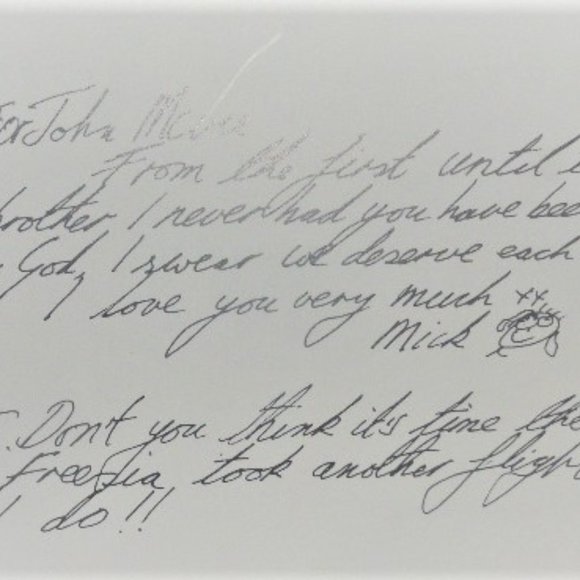 For John
From the first until
brother I never had you have bee
God, I swear we deserve each
I love you very much xx
Mick
. Don't you think it's time the
Freefia took another fligh
I do!!